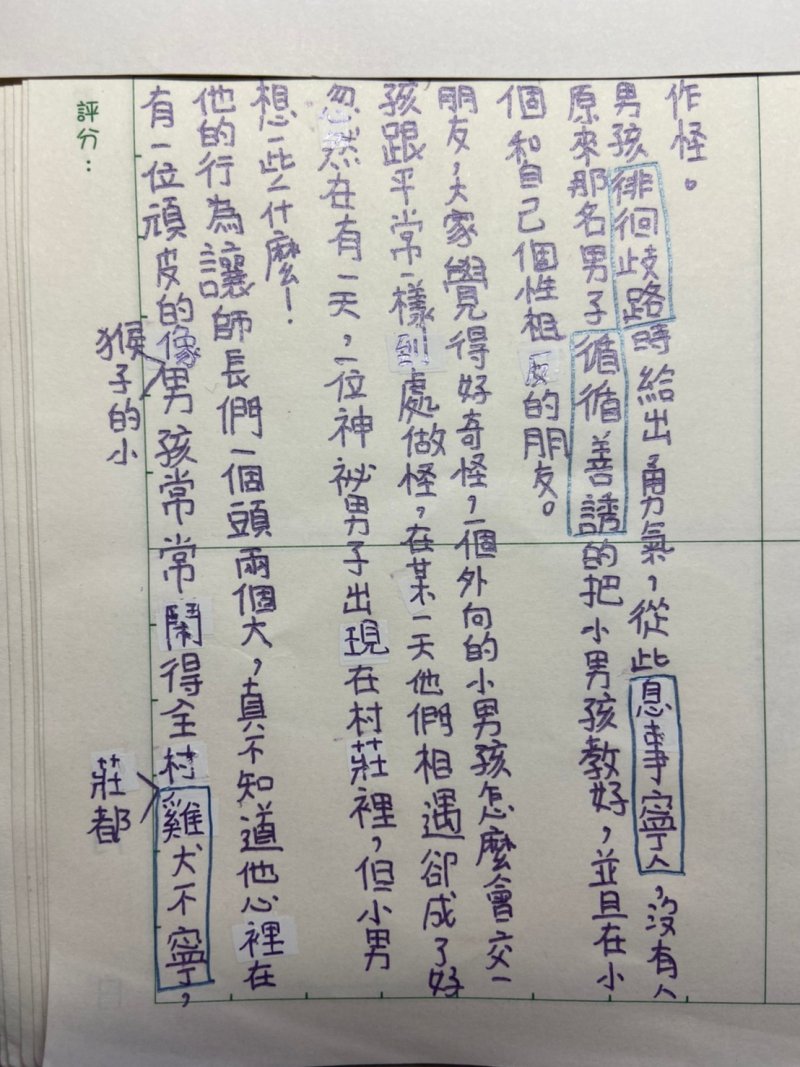 評分：
有一位頑皮的像猴子的小男孩常常鬧得全村莊都雞犬不寧，
他的行為讓師長們一個頭兩個大，真不知道他心裡在
想一些什麼！
忽然在有一天，一位神祕男子出現在村莊裡，但小男
孩跟平常一樣到處做怪，在某一天他們相遇卻成了好
朋友，大家覺得好奇怪，一個外向的小男孩怎麼會交一
個和自己個性相反的朋友。
原來那名男子循循善誘的把小男孩教好，並且在小
男孩徘徊歧路時給出勇氣，從此息事寧人，沒有人
作怪。